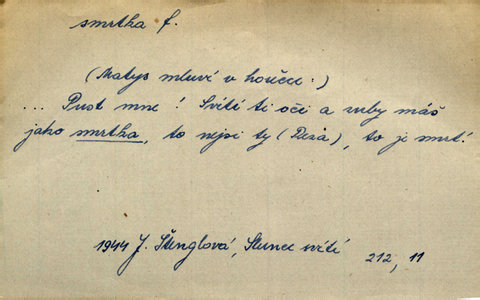 smrtka f.
(Matys mluví v horečce:)
... Pusť mne! Svítí ti oči a zuby máš
jako smrtka, to nejsi ty (Réza), to je smrt!
1944 J. Štenglová, Slunce svítí 212, 11